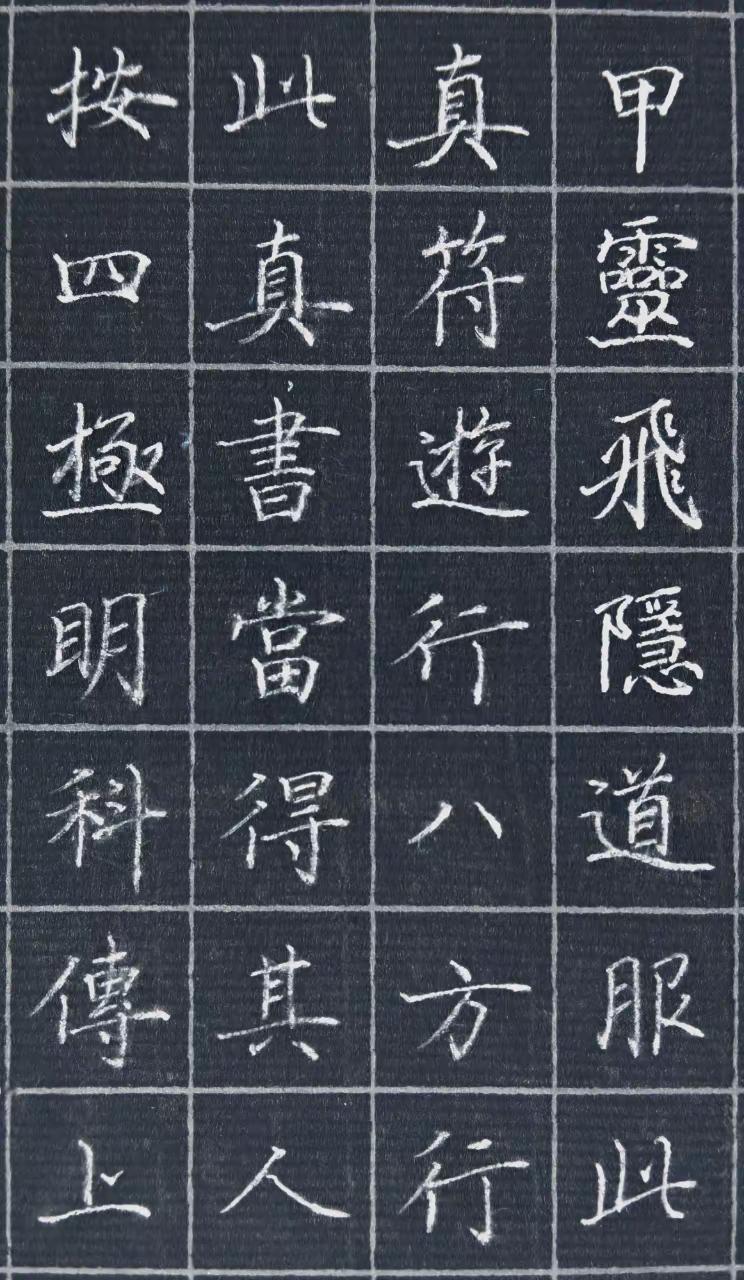 甲靈飛隱道服此
真符遊行八方行
此真書當得其人
按四極明科傳上